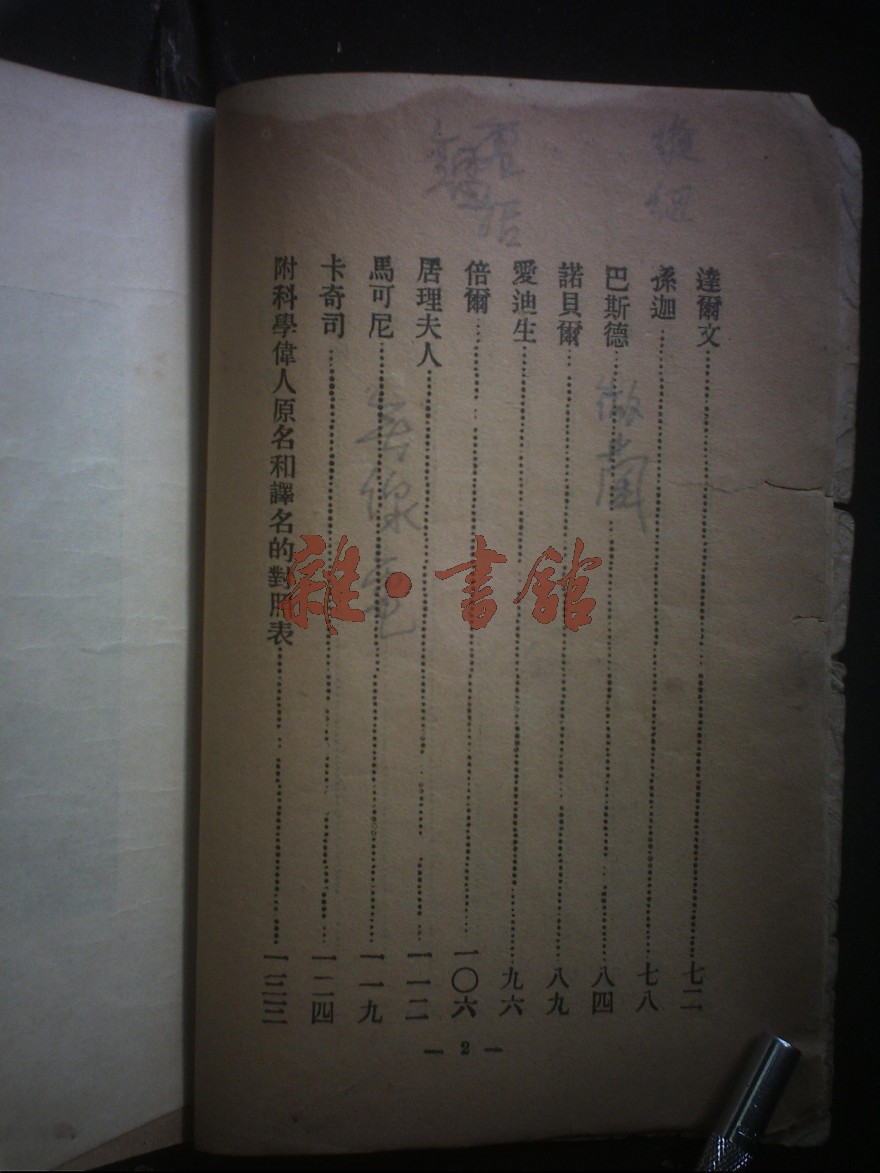 達爾文……七二
孫迦……七八
巴斯德……八四
諾貝爾……八九
愛迪生……九六
倍爾……一〇六
居理夫人……一一二
馬可尼……一一九
卡奇司……一二四
附科學偉人原名和譯名的對照表……一三三
— 2 —
無線電
雜·書館